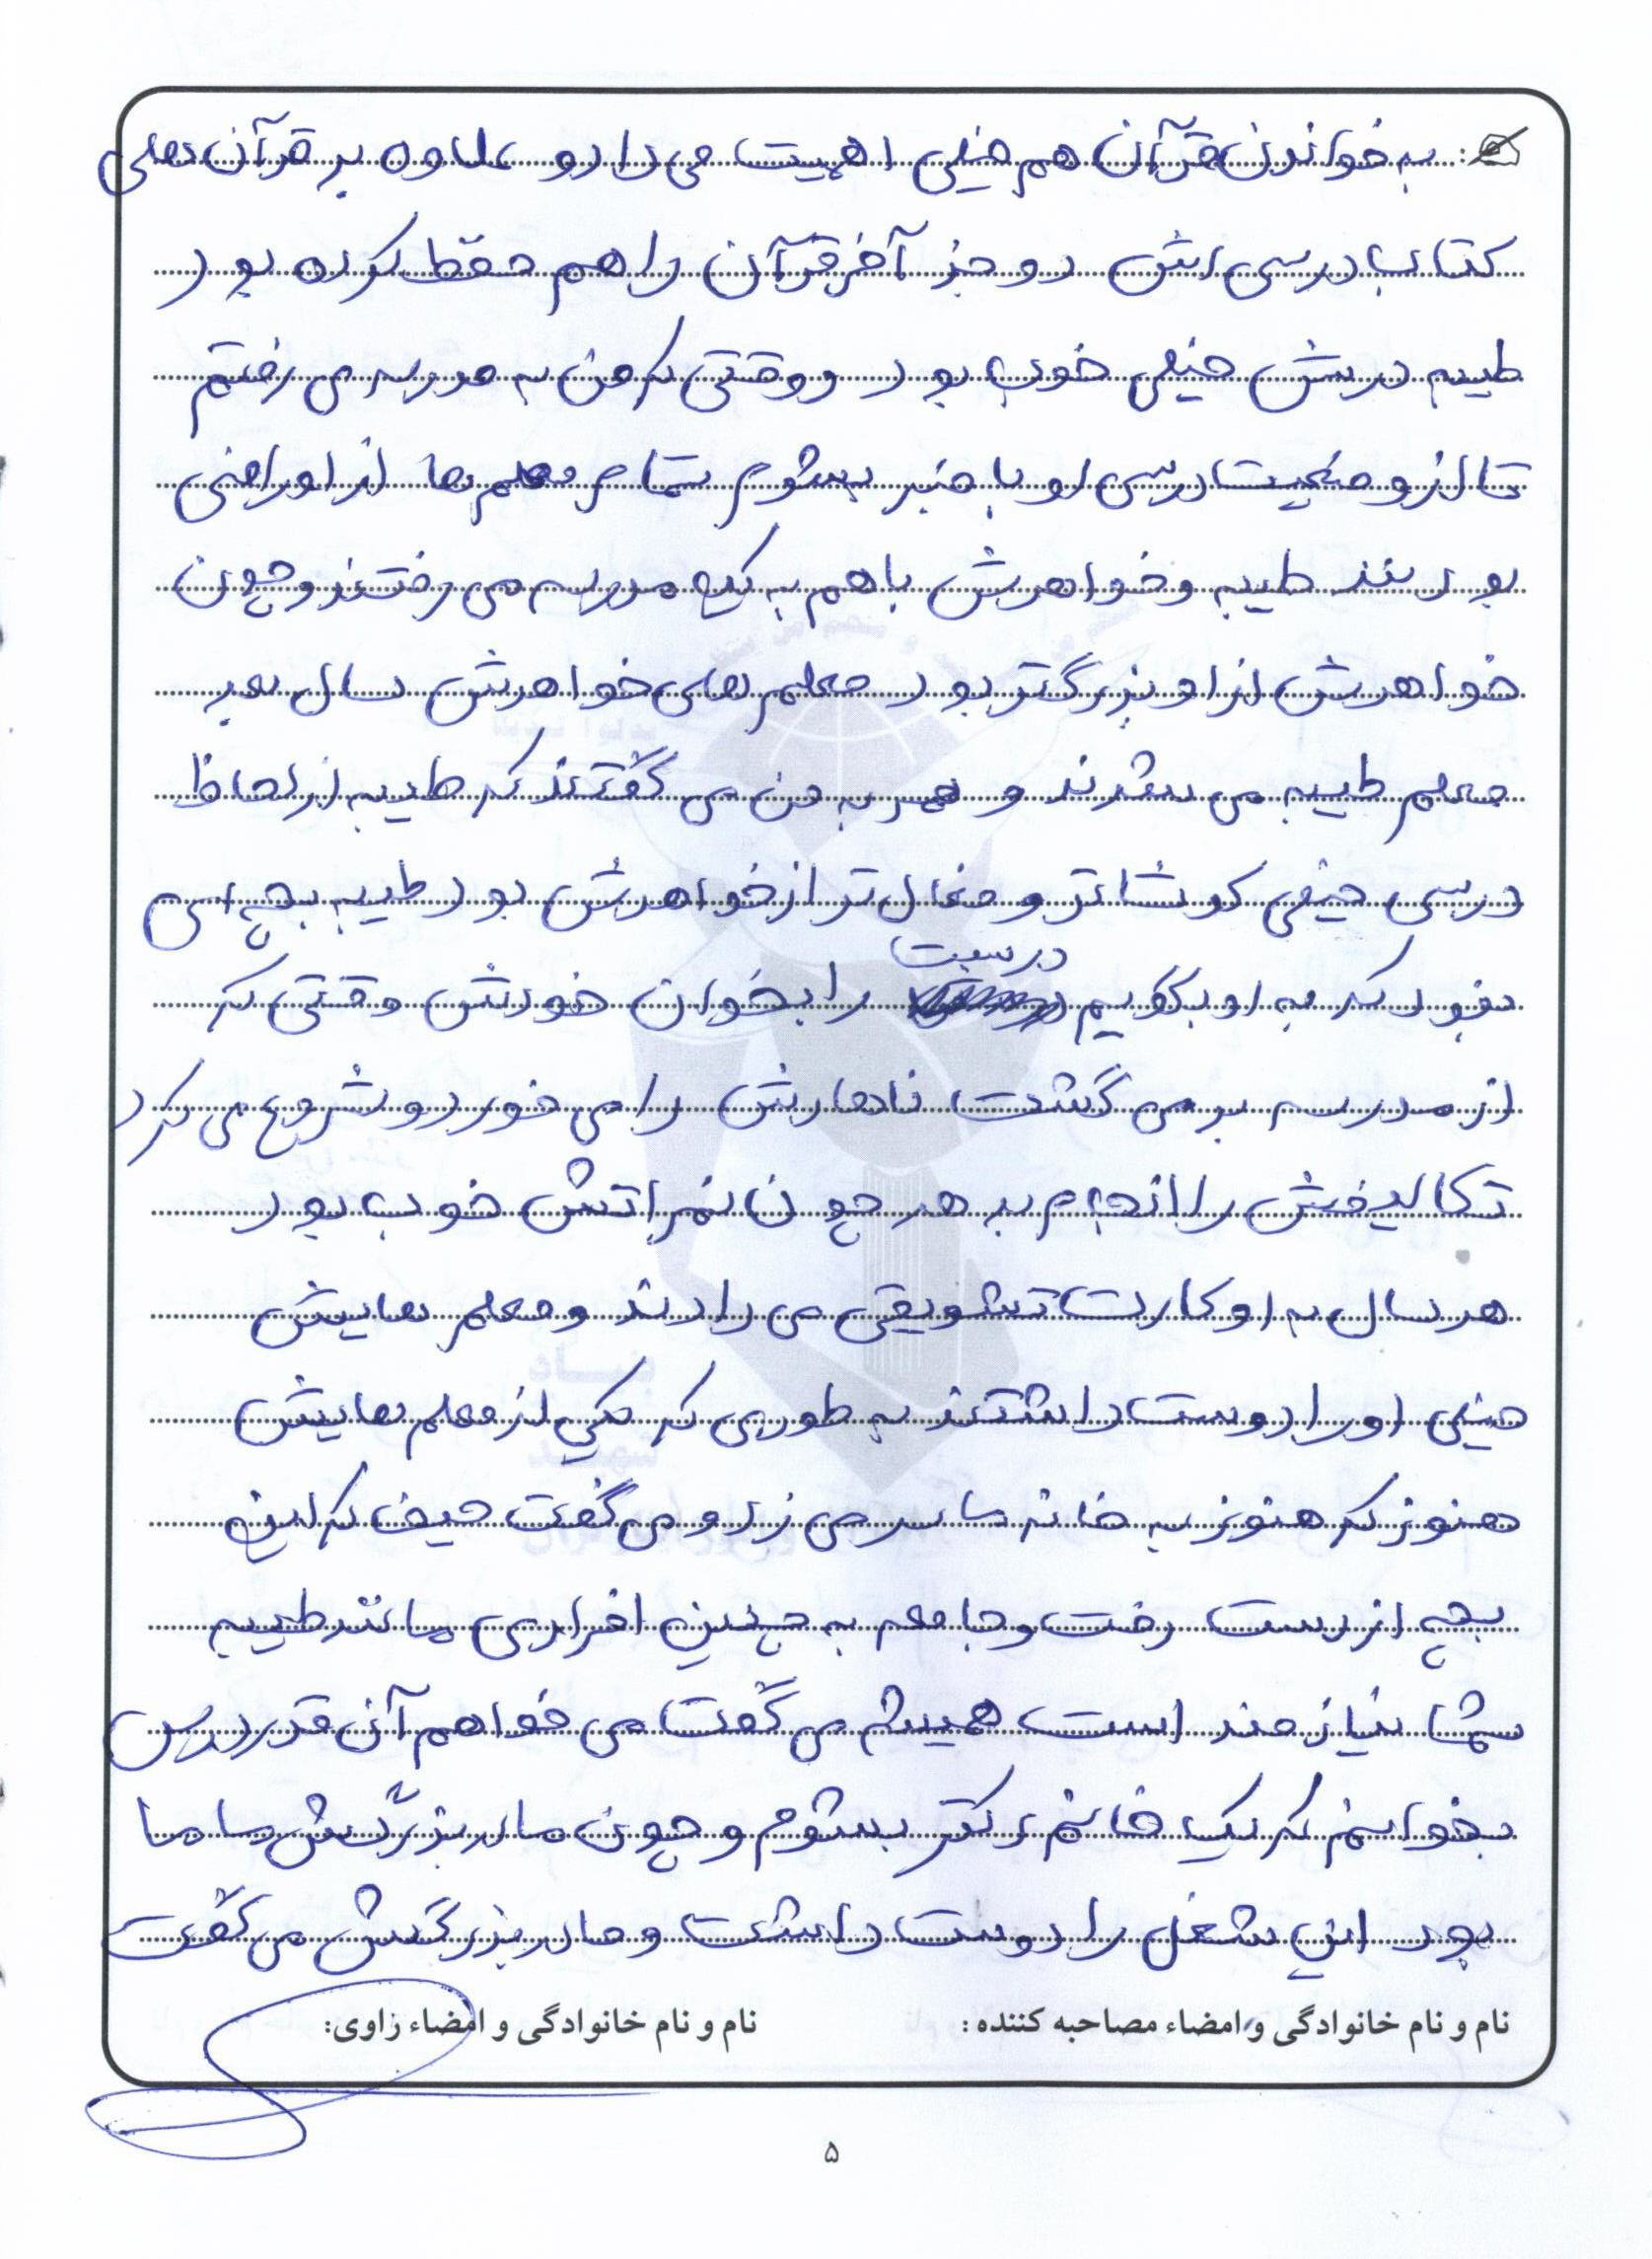 به خواندن قرآن هم خیلی اهمیت می داد و علاوه بر قرآن های
کتاب درسی اش دو جز آخر قرآن را هم حفظ کرده بود
طیبه درسش خیلی خوب بود و وقتی که من به مدرسه می رفتم
تا از وضعیت درسی او با خبر بشوم تمام معلم ها از او راضی
بودند طیبه و خواهرش باهم به یک مدرسه می رفتند و چون
خواهرش از او بزرگتر بود معلم های خواهرش سال بعد
معلم طیبه می شدند و همه به من می گفتند که طیبه از لحاظ
درسی خیلی کوشاتر و فعال تر از خواهرش بود طیبه بچه ای
نبود که به او بگویم درست را بخوان خودش وقتی که
از مدرسه بر می گشت ناهارش را می خورد و شروع می کرد
تکالیفش را انجام بدهد چون نمراتش خوب بود
هر سال به او کارت تشویقی می دادند و معلم هایش
خیلی او را دوست داشتند به طوری که یکی از معلم هایش
هنوز که هنوز به خانه ما سر می زد و می گفت حیف که این
بچه از دست رفت و جامعه به چنین افرادی مانند طیبه
شما نیازمند است همیشه می گفت می خواهم آن قدر درس
بخوانم که یک خانم دکتر بشوم و چون مادربزرگش ماما
بود این شغل را دوست داشت و مادربزرگش می گفت
نام و نام خانوادگی و امضاء مصاحبه کننده :
نام و نام خانوادگی و امضاء راوی:
۵